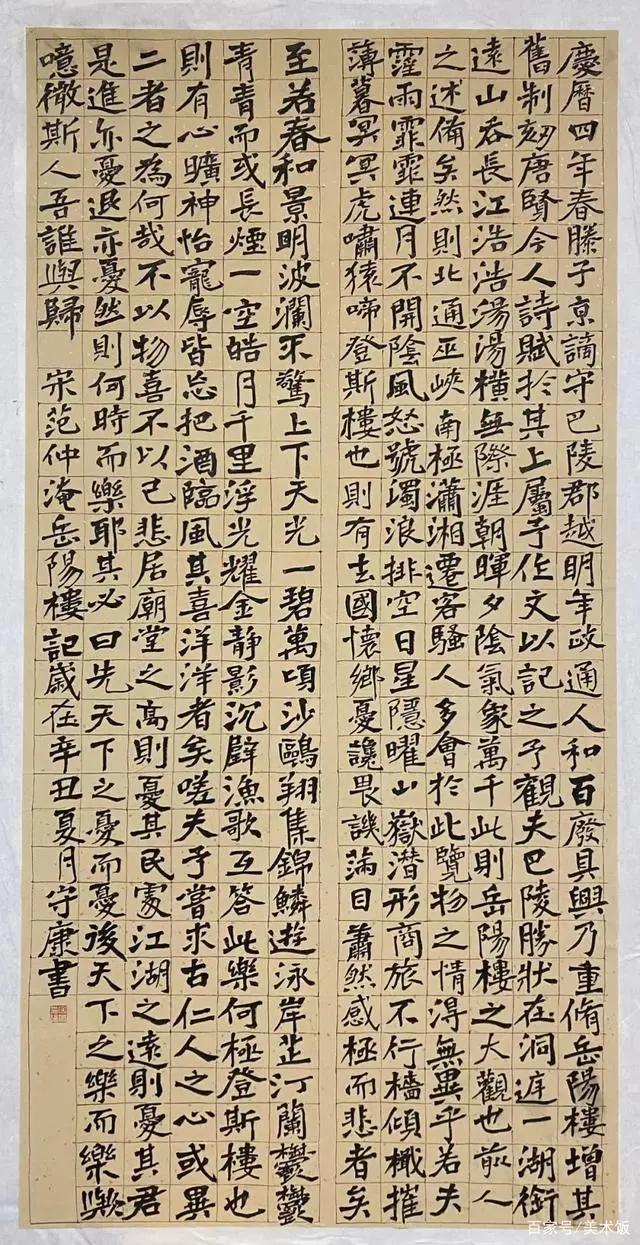 慶曆四年春滕子京謫守巴陵郡越明年政通人和百廢具興乃重脩岳陽樓增其
舊制刻唐賢今人詩賦於其上屬予作文以記之予觀夫巴陵勝狀在洞庭一湖銜
遠山吞長江浩浩湯湯橫無際涯朝暉夕陰氣象萬千此則岳陽樓之大觀也前人
之述備矣然則北通巫峽南極瀟湘遷客騷人多會於此覽物之情得無異乎若夫
霪雨霏霏連月不開陰風怒號濁浪排空日星隱曜山嶽潛形商旅不行檣傾檝摧
薄暮冥冥虎嘯猿啼登斯樓也則有去國懷鄉憂讒畏譏滿目蕭然感極而悲者矣
至若春和景明波瀾不驚上下天光一碧萬頃沙鷗翔集錦鱗遊泳岸芷汀蘭鬱鬱
青青而或長煙一空皓月千里浮光耀金靜影沉璧漁歌互答此樂何極登斯樓也
則有心曠神怡寵辱皆忘把酒臨風其喜洋洋者矣嗟夫予嘗求古仁人之心或異
二者之為何哉不以物喜不以己悲居廟堂之高則憂其民處江湖之遠則憂其君
是進亦憂退亦憂然則何時而樂耶其必曰先天下之憂而憂後天下之樂而樂歟
噫微斯人吾誰與歸 宋范仲淹岳陽樓記歲在辛丑夏月守廉書
百家号/美术饭